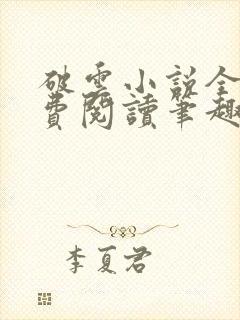 破雲小說全
費閱讀筆趣
李夏君